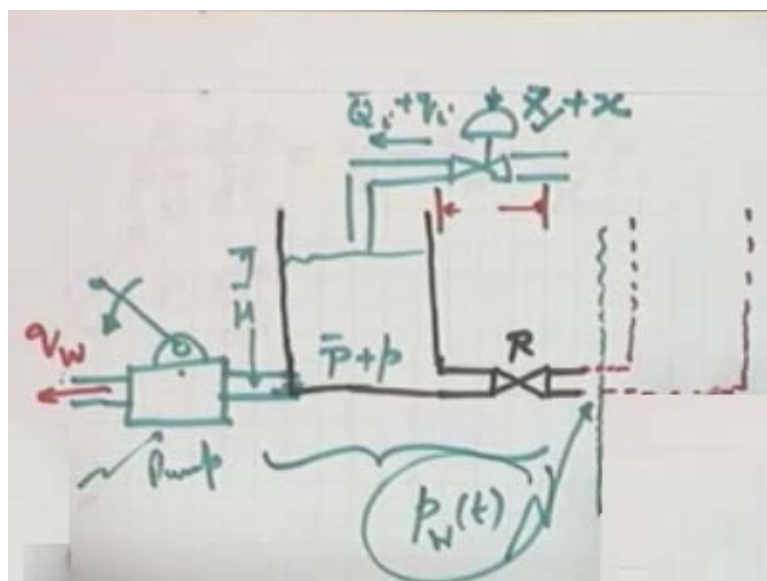 Q̄ᵢ+qᵢ
X̄+x
q_W
P̄+p
R
Pump
p_W(t)